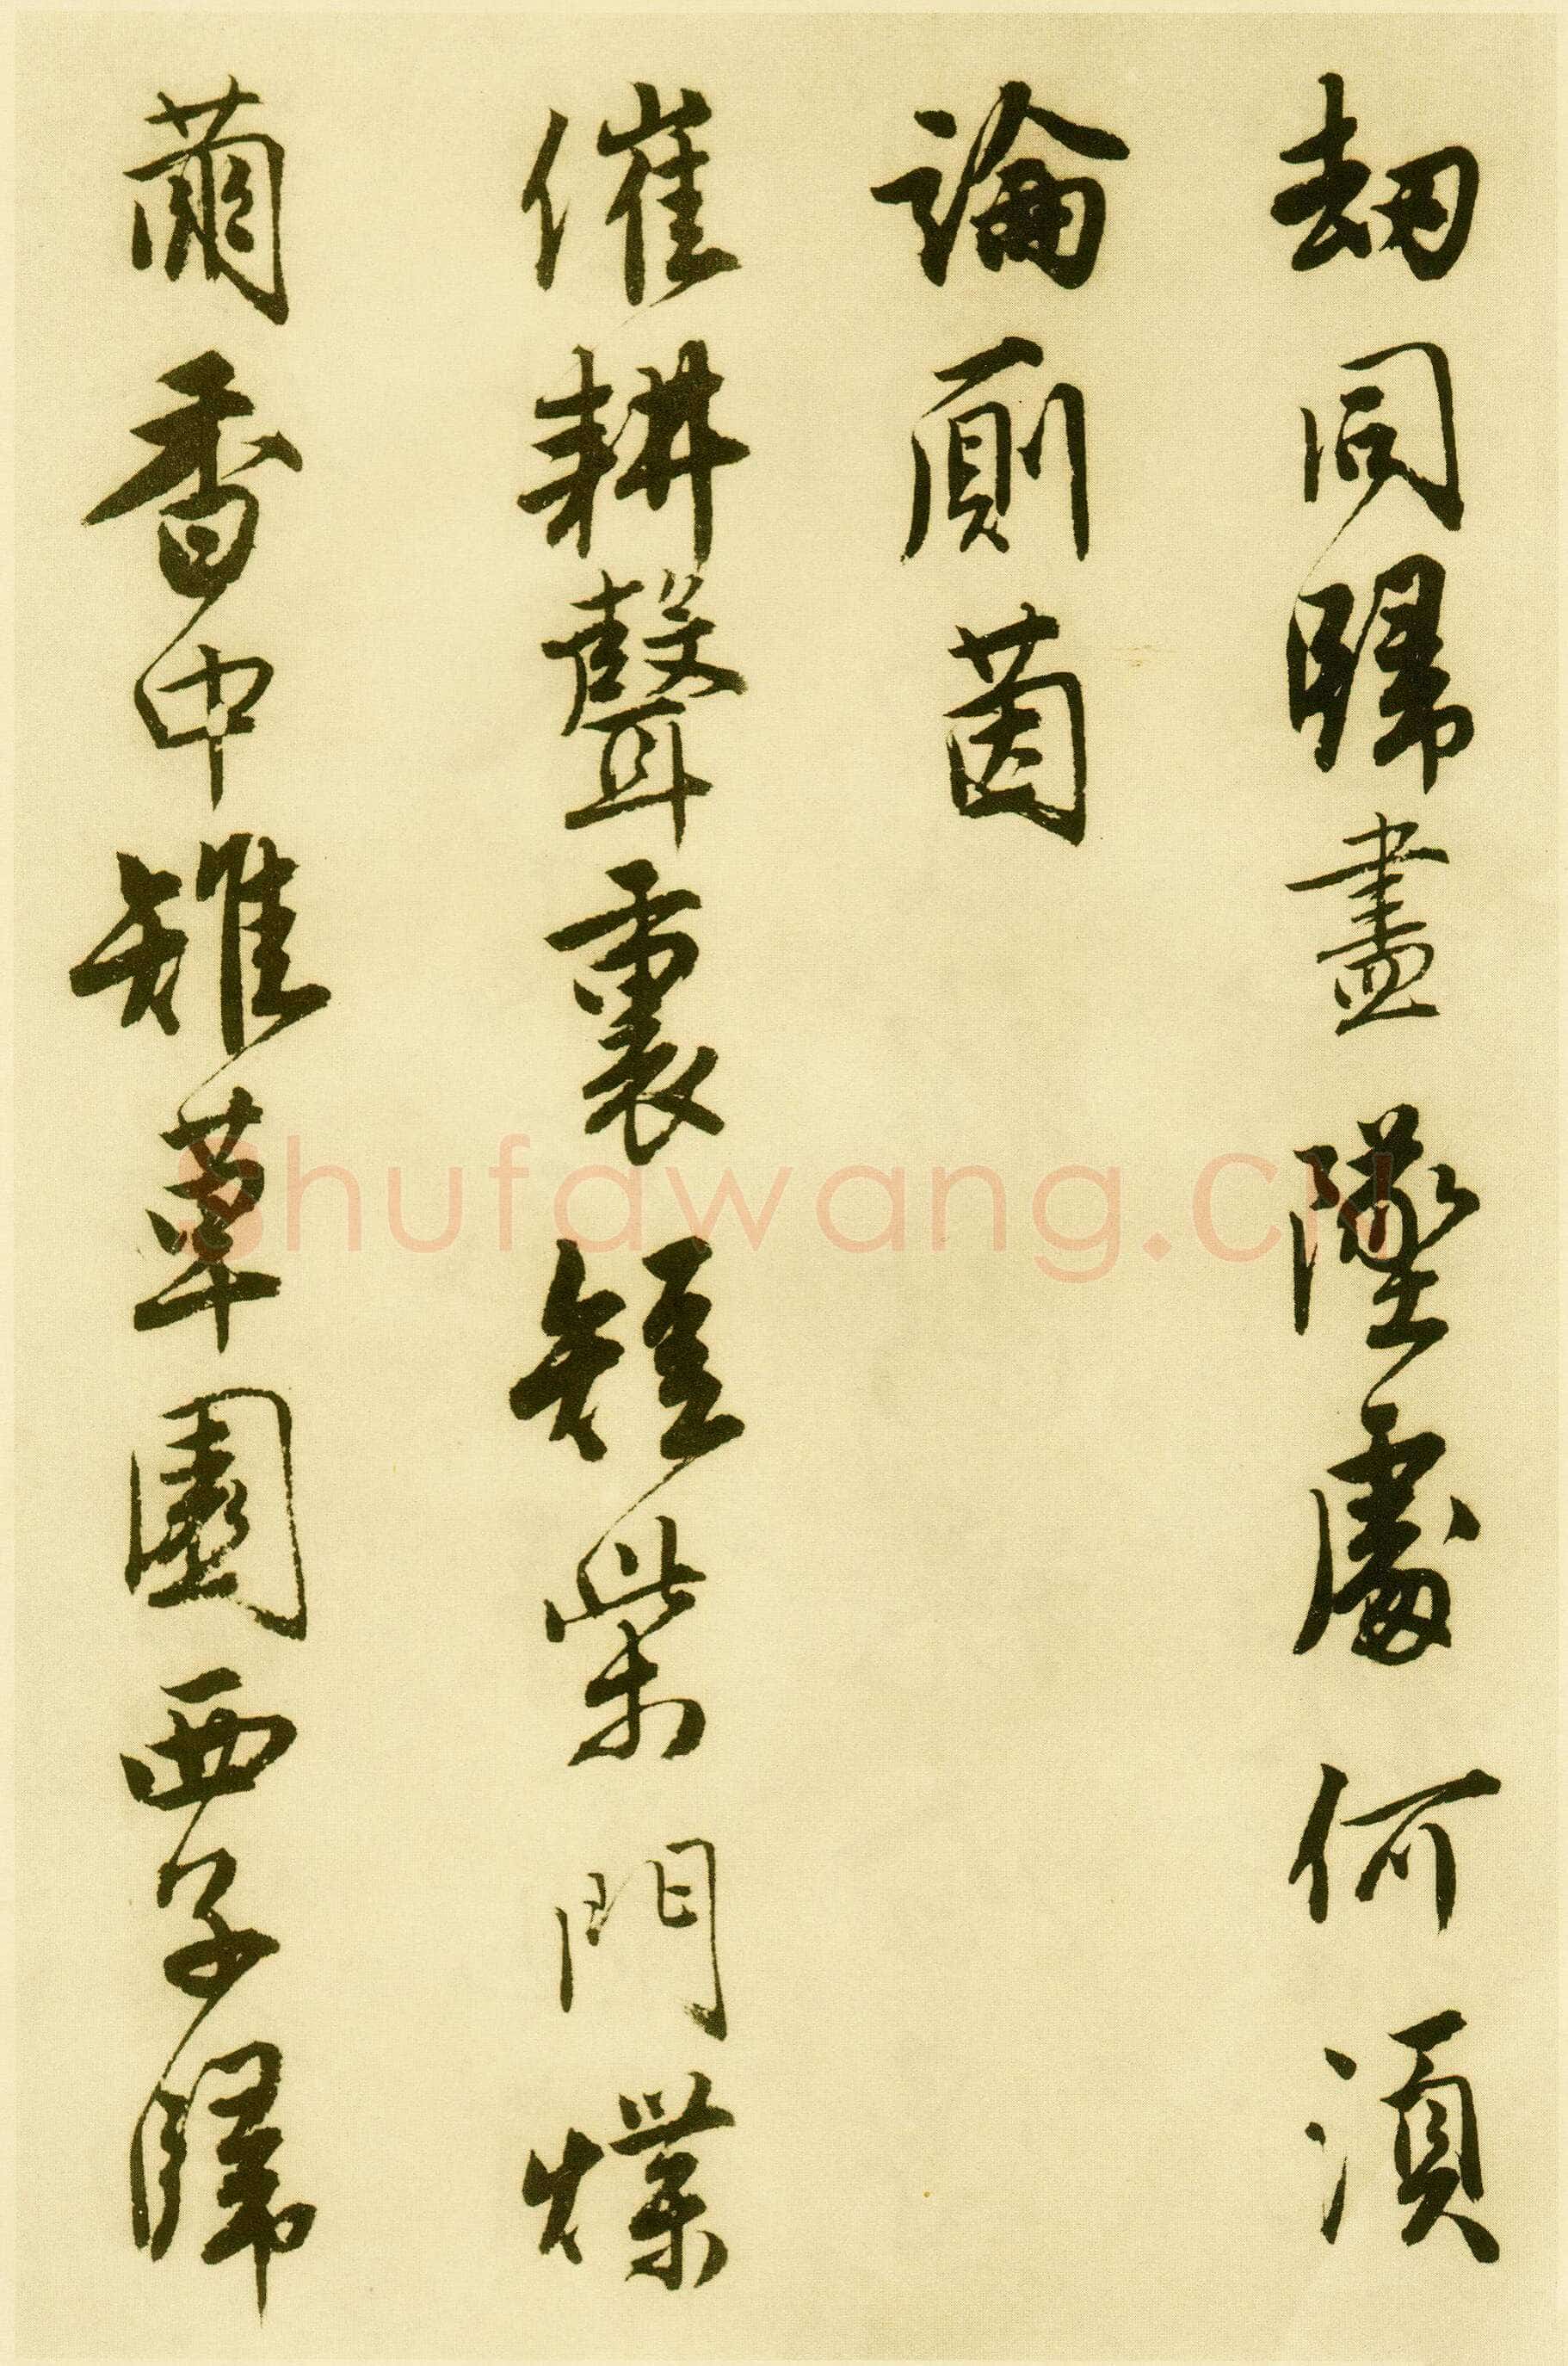 刼同歸盡墜處何湏
論厠茵
催耕聲裏短柴門煠
繭香中雉草園西子歸
Shufawang.cn